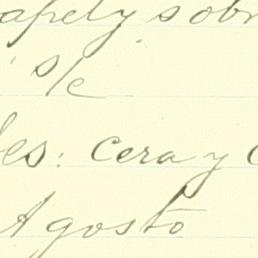 apel y sobr
s/c
es: cera y
Agosto